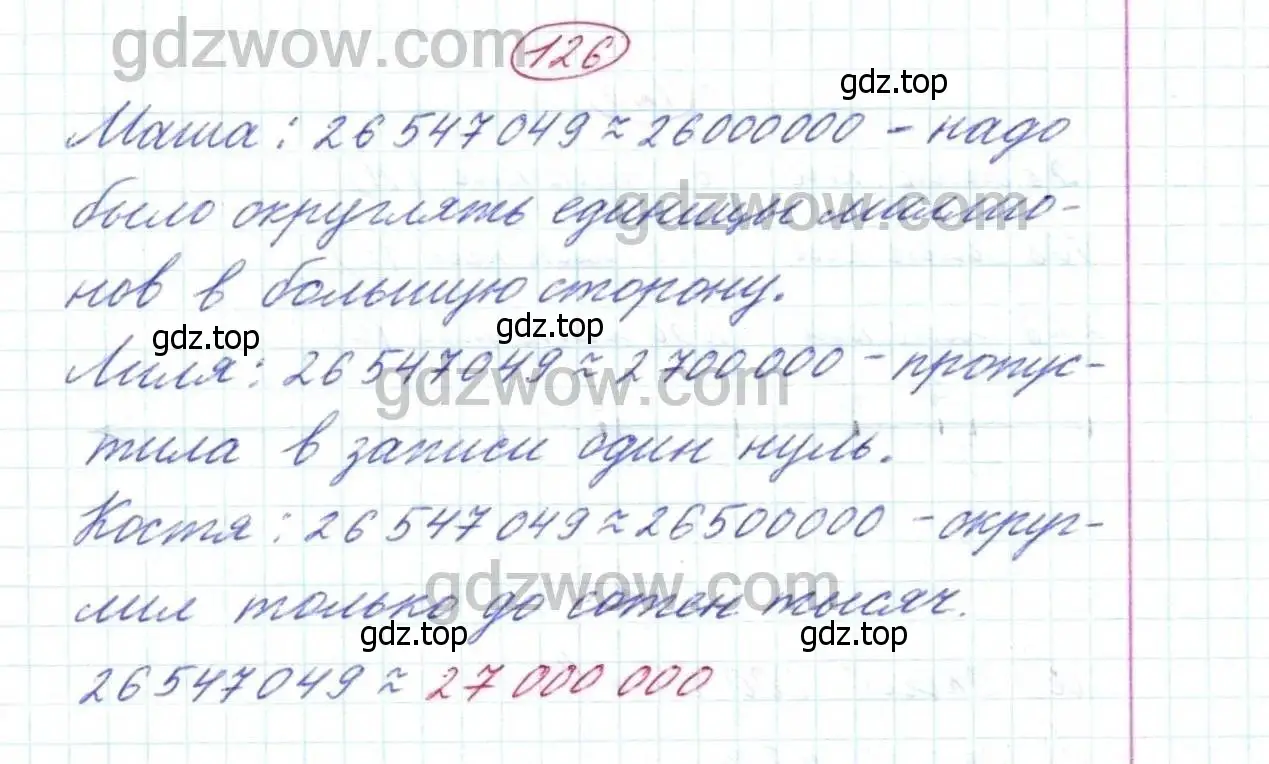 gdzwow.com
126
gdz.top
Маша: 26 547 049 ≈ 26000000 - надо
gdzwow.com
было округлять единицы миллио-
нов в большую сторону.
gdz.top gdz.top
Лиля: 26 547 049 ≈ 2 700 000 - пропус-
gdzwow.com
тила в записи один нуль.
Костя: 26 547 049 ≈ 26500000 - округ-
gdzwow.com
лил только до сотен тысяч.
gdz.top gdz.top
26 547 049 ≈ 27 000 000